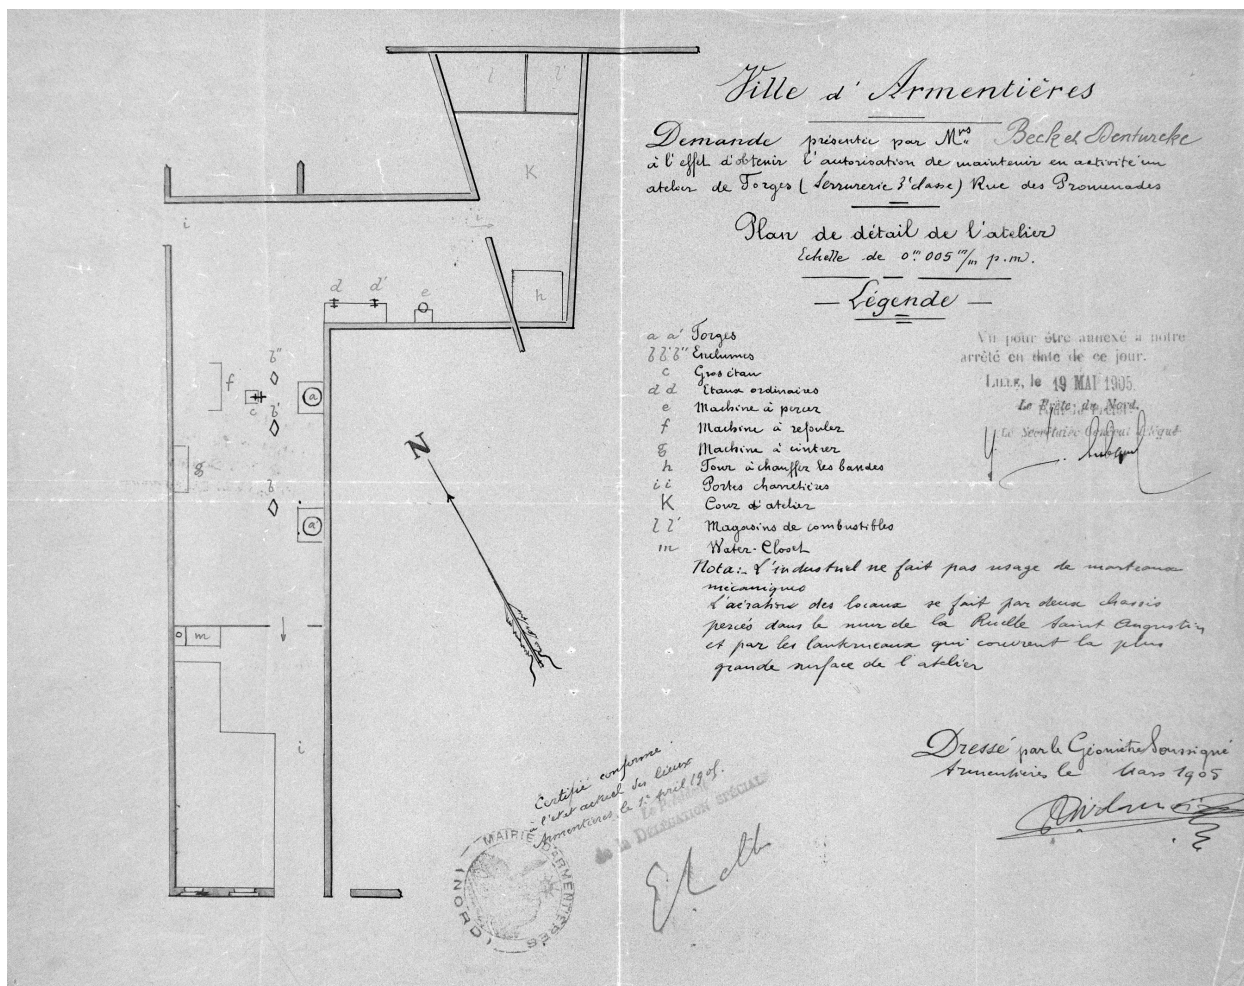 l l'
K
i
i
h
d d' e
b''
f
c b' a
g
b
a
m
i
N
Ville d'Armentières
Demande présentée par Mrs Beck et Denturcke
à l'effet d'obtenir l'autorisation de maintenir en activité un
atelier de Forges (Serrurerie 3e classe) Rue des Promenades
Plan de détail de l'atelier
Echelle de 0m.005 m/m p.m.
Légende
a a' Forges
b b' b'' Enclumes
c Gros étau
d d Etaux ordinaires
e Machine à percer
f Machine à refouler
g Machine à cintrer
h Four à chauffer les bandes
i i Portes charretières
K Cour d'atelier
l l' Magasins de combustibles
m Water-Closet
Nota:- L'industriel ne fait pas usage de marteaux
mécaniques
L'aération des locaux se fait par deux chassis
percés dans le mur de la Ruelle Saint Augustin
et par les lanterneaux qui couvrent la plus
grande surface de l'atelier
Vu pour être annexé à notre
arrêté en date de ce jour.
LILLE, le 19 MAI 1905
Le Préfet du Nord,
Le Secrétaire Général délégué
Dressé par le Géomètre Soussigné
Armentières le Mars 1905
Certifié conforme
à l'état actuel des lieux
Armentières, le 1er april 1905.
Le Président
de la DÉLÉGATION SPÉCIALE
MAIRIE D'ARMENTIÈRES
(NORD)